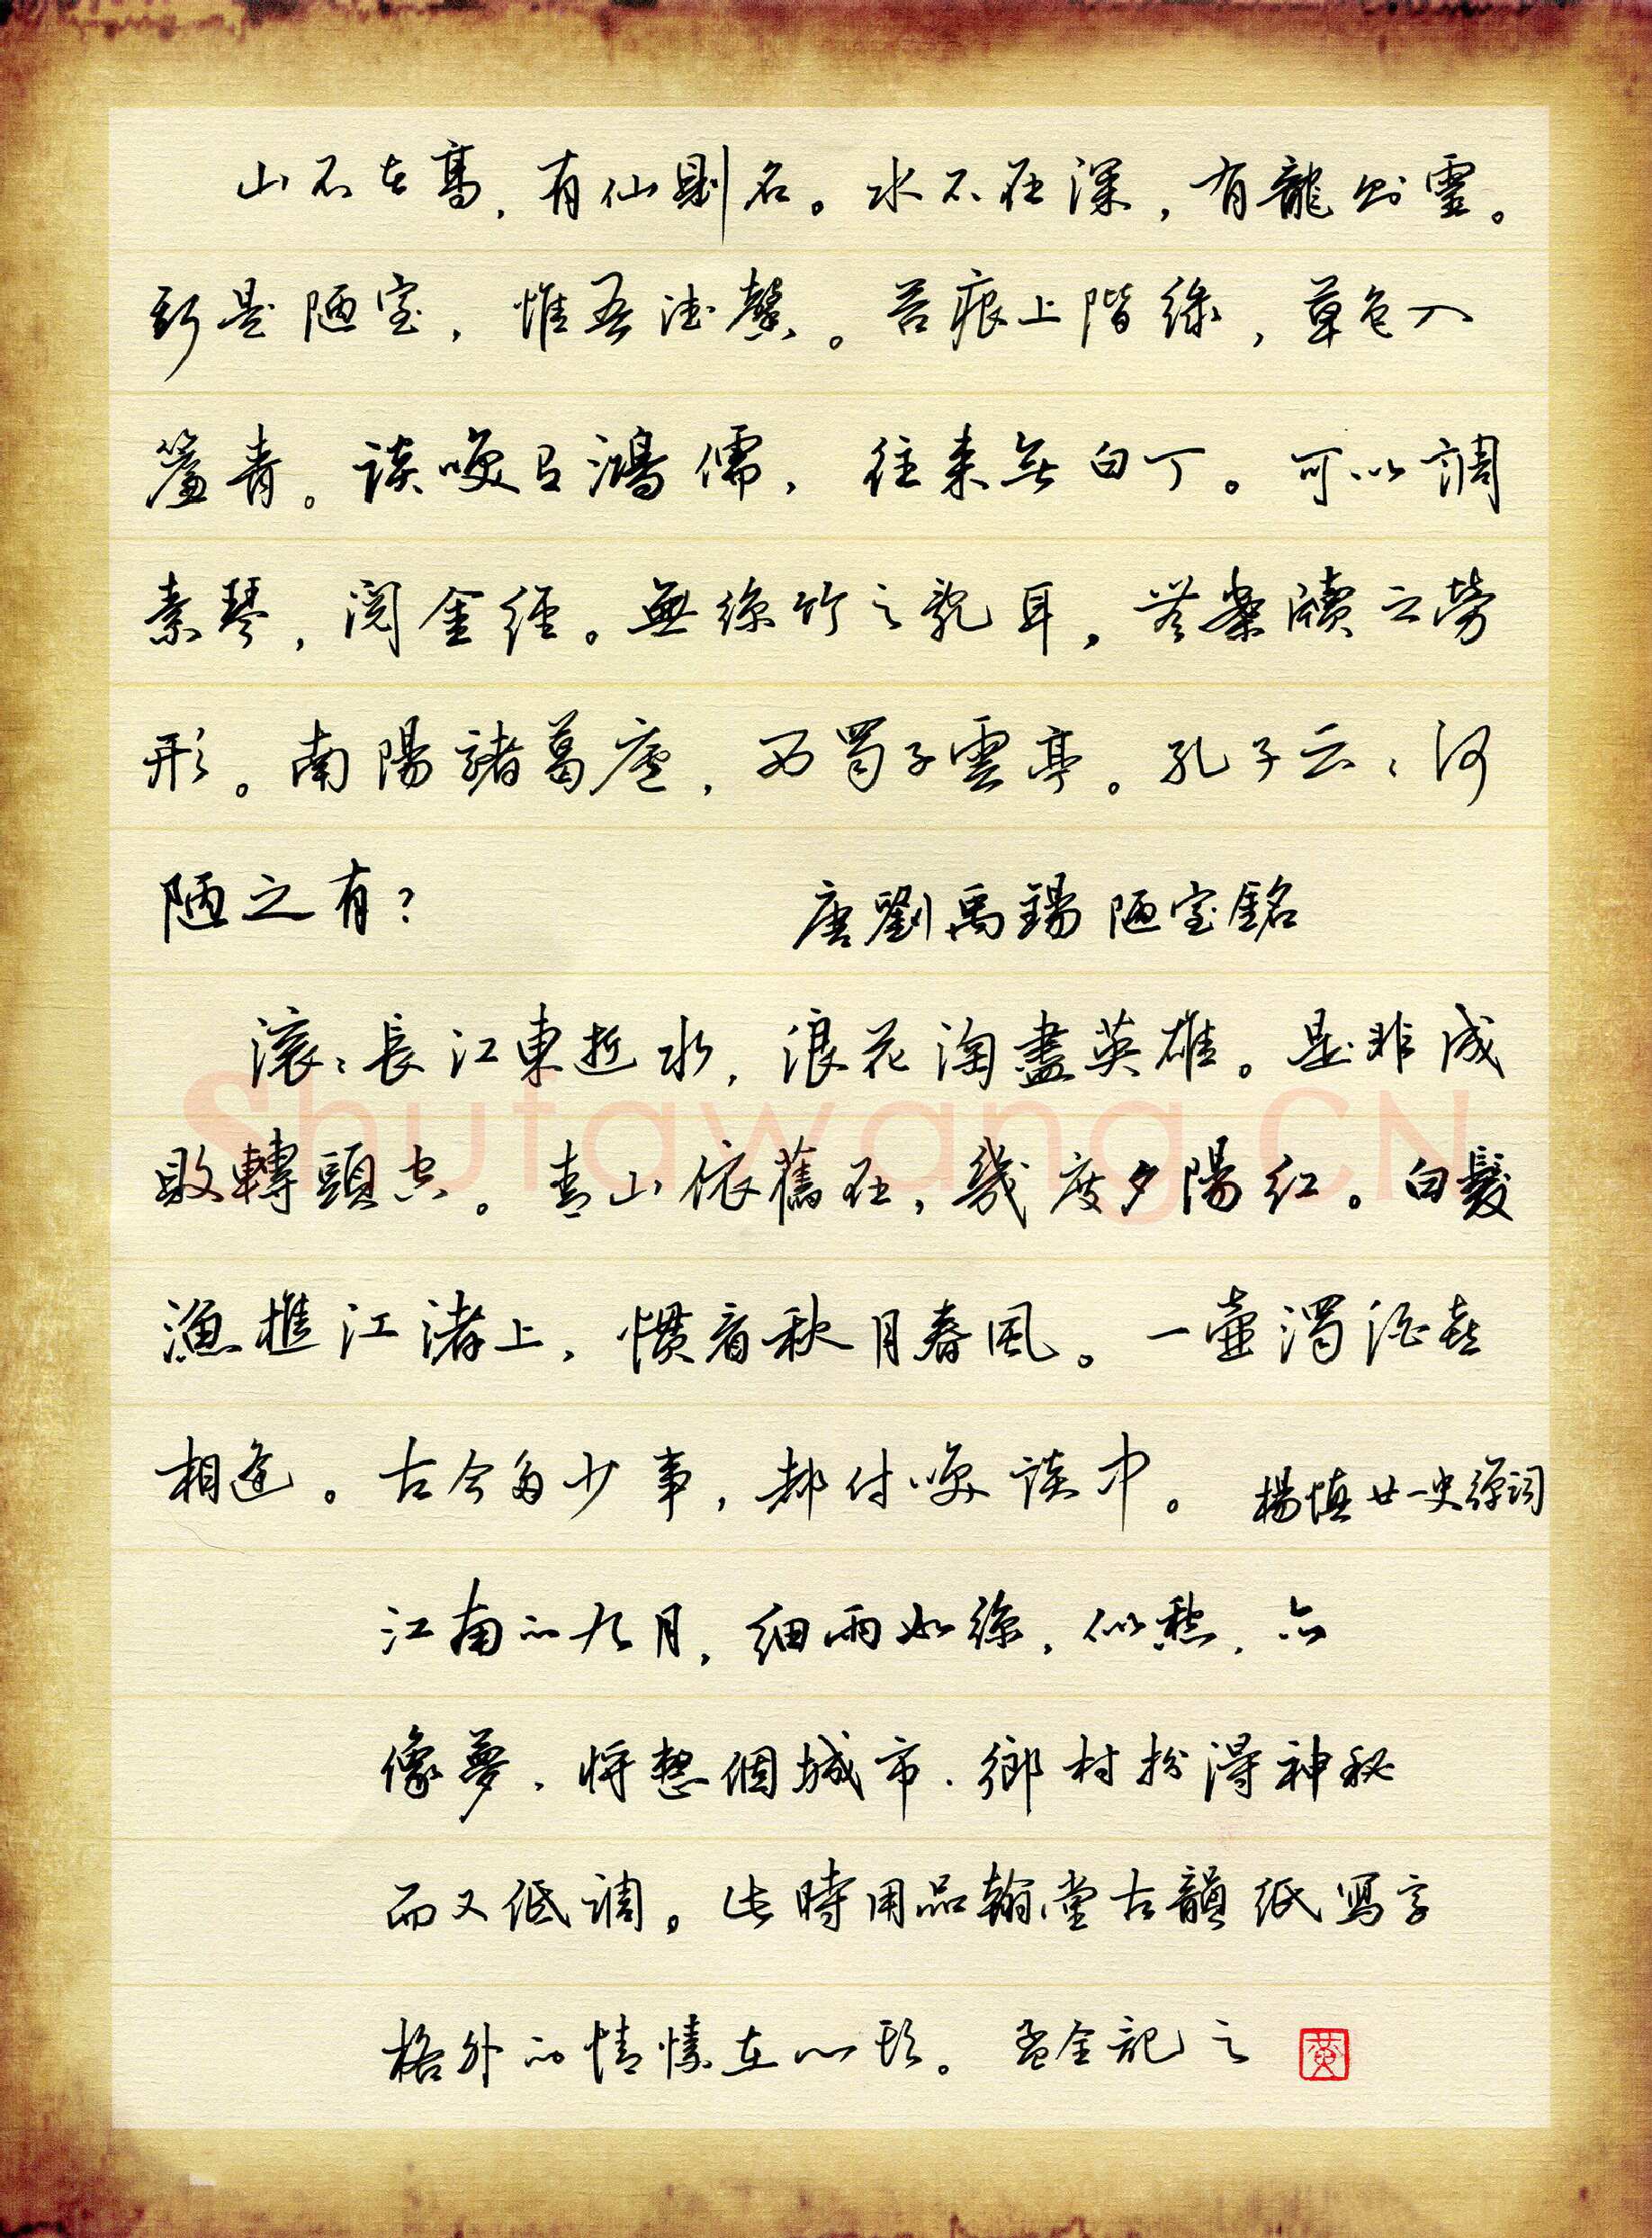 山不在高，有仙則名。水不在深，有龍則靈。
斯是陋室，惟吾德馨。苔痕上階綠，草色入
簾青。談笑有鴻儒，往來無白丁。可以調
素琴，閱金經。無絲竹之亂耳，無案牘之勞
形。南陽諸葛廬，西蜀子雲亭。孔子云：何
陋之有？
唐劉禹錫陋室銘
滾：長江東逝水，浪花淘盡英雄。是非成
敗轉頭空。青山依舊在，幾度夕陽紅。白髮
漁樵江渚上，慣看秋月春風。一壺濁酒喜
相逢。古今多少事，都付笑談中。
楊慎廿一史彈詞
江南的九月，細雨如絲，似愁，亦
像夢，將整個城市、鄉村扮得神秘
而又低調。此時用品翰堂古韻紙寫字
格外的情愫在心頭。孟全記之
黄
Shufawang.CN